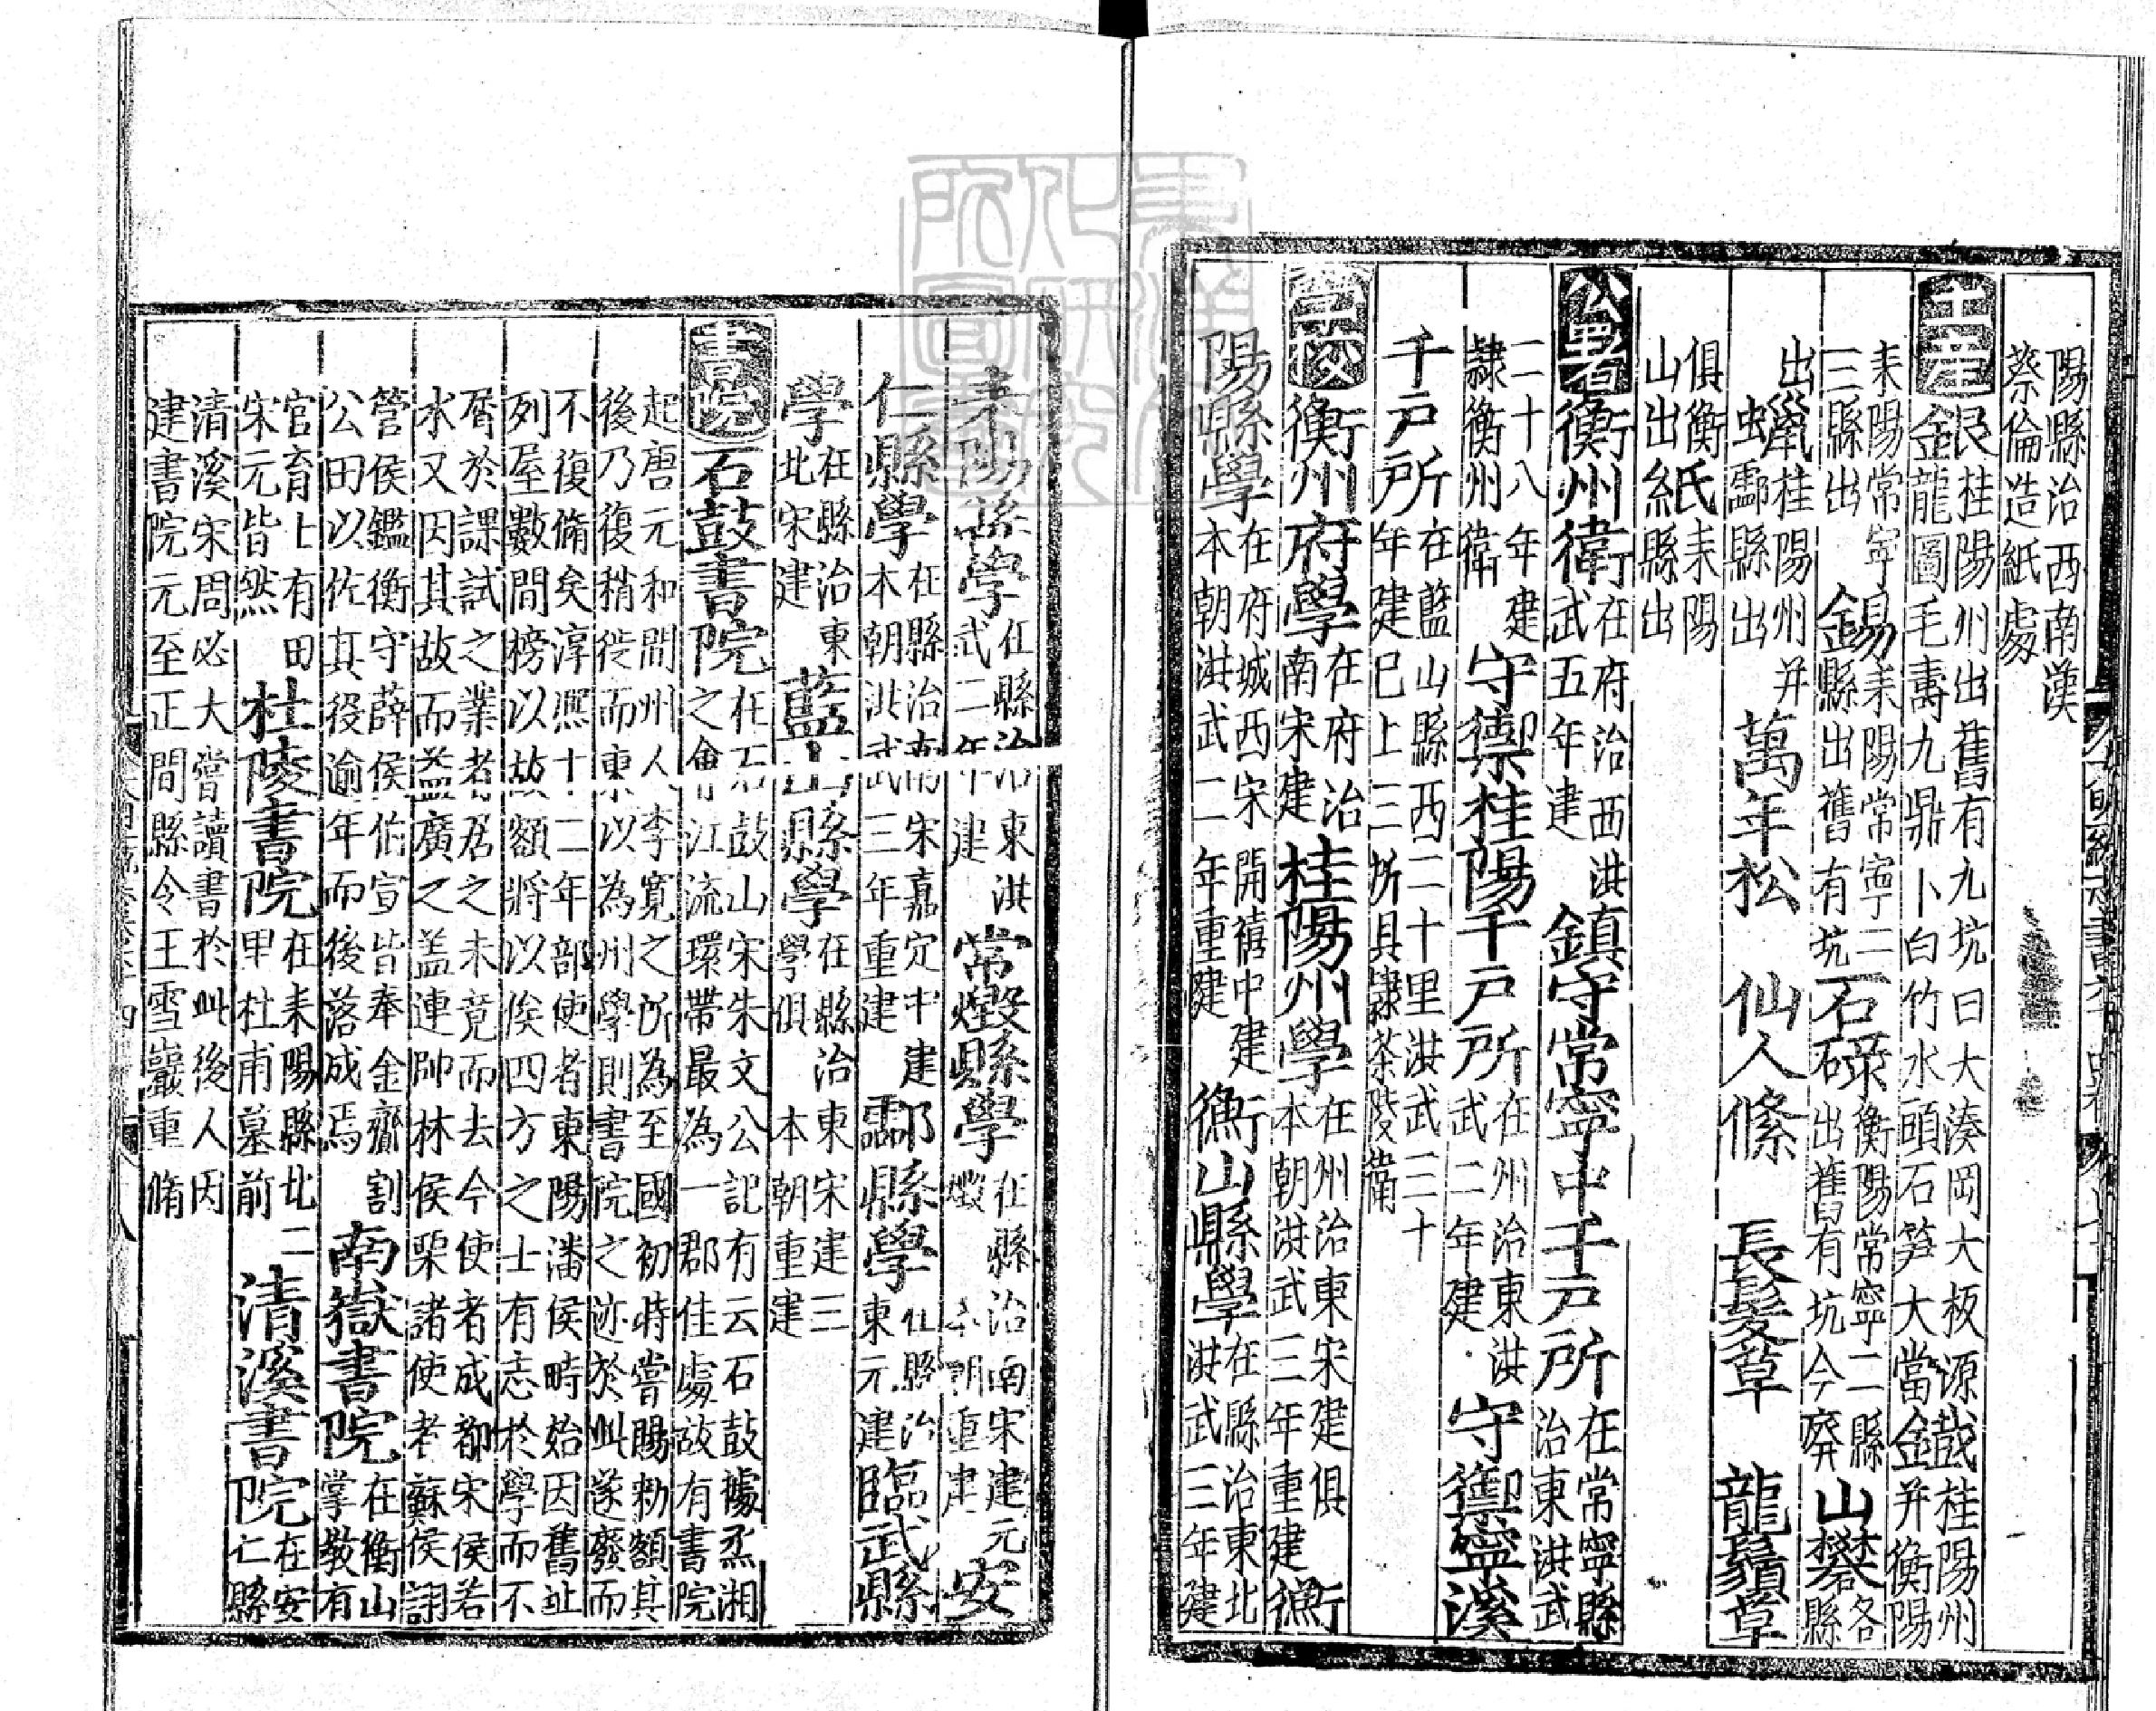 陽縣治西南漢
蔡倫造紙處
土産
銀桂陽州出舊有九坑曰大湊岡大板源
金龍圖毛壽九鼎卜白竹水頭石笋大當
鐵桂陽州
耒陽常寕
金并衡陽
三縣出
錫耒陽常寧二
縣出舊有坑
石碌衡陽常寧二縣
出舊有坑今廢
山礬各縣
出
蠟桂陽州并
虫酃縣出
萬年松
仙人絛
長髮草
龍鬚草
俱衡
山出
紙耒陽
縣出
公署
衡州衛在府治西洪
武五年建
鎮守常寧中千戸所在常寧縣
治東洪武
二十八年建
隸衡州衛
守禦桂陽千戸所在州治東洪
武二年建
守禦寧溪
千戸所在藍山縣西二十里洪武三十
年建已上三所具隸茶陵衛
學校
衡州府學在府治
南宋建
桂陽州學在州治東宋建俱
本朝洪武三年重建
衡
陽縣學在府城西宋開禧中建
本朝洪武二年重建
衡山縣學在縣治東北
洪武三年建
耒陽縣學在縣治東洪
武二年建
常寧縣學在縣治南宋建元
燬本朝重建
安
仁縣學在縣治南宋嘉定中建
本朝洪武三年重建
酃縣學在縣治
東元建
臨武縣
學在縣治東
北宋建
藍山縣學在縣治東宋建三
學俱本朝重建
書院
石鼓書院在石鼓山宋朱文公記有云石鼓據烝湘
之會江流環帶最為一郡佳處故有書院
起唐元和間州人李寛之所為至國初時嘗賜勑額其
後乃復稍徙而東以為州學則書院之迹於此遂廢而
不復脩矣淳熈十二年部使者東陽潘侯畤始因舊址
列屋數間榜以故額將以俟四方之士有志於學而不
屑於課試之業者居之未竟而去今使者成都宋侯若
水又因其故而益廣之盖連帥林侯栗諸使者蘇侯詡
管侯鑑衡守薛侯伯宣皆奉金齎割
公田以佐其役逾年而後落成焉
南嶽書院在衡山
掌教有
官育士有田
宋元皆然
杜陵書院在耒陽縣北二
里杜甫墓前
清溪書院在安
仁縣
清溪宋周必大嘗讀書於此後人因
建書院元至正間縣令王雪巖重脩